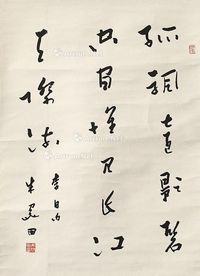 孤帆遠影碧
空盡惟見長江
天際流
李白句
朱 田